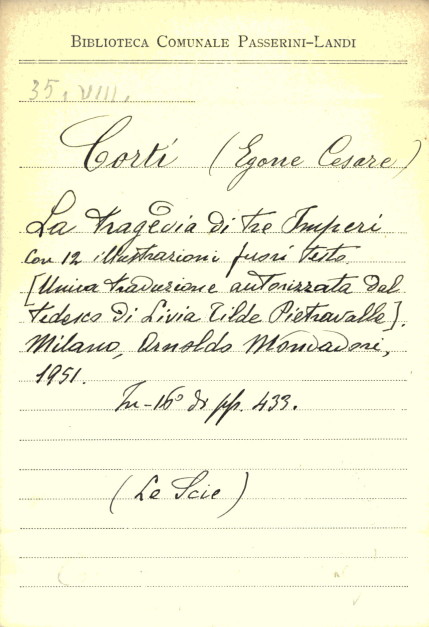 BIBLIOTECA COMUNALE PASSERINI-LANDI
35. VIII.
Corti (Egone Cesare)
La tragedia di tre Imperi
Con 12 illustrazioni fuori testo.
[Unica traduzione autorizzata dal
tedesco di Livia Tilde Pietravalle].
Milano, Arnoldo Mondadori,
1951.
In-16° di pp. 433.
(Le Scie)